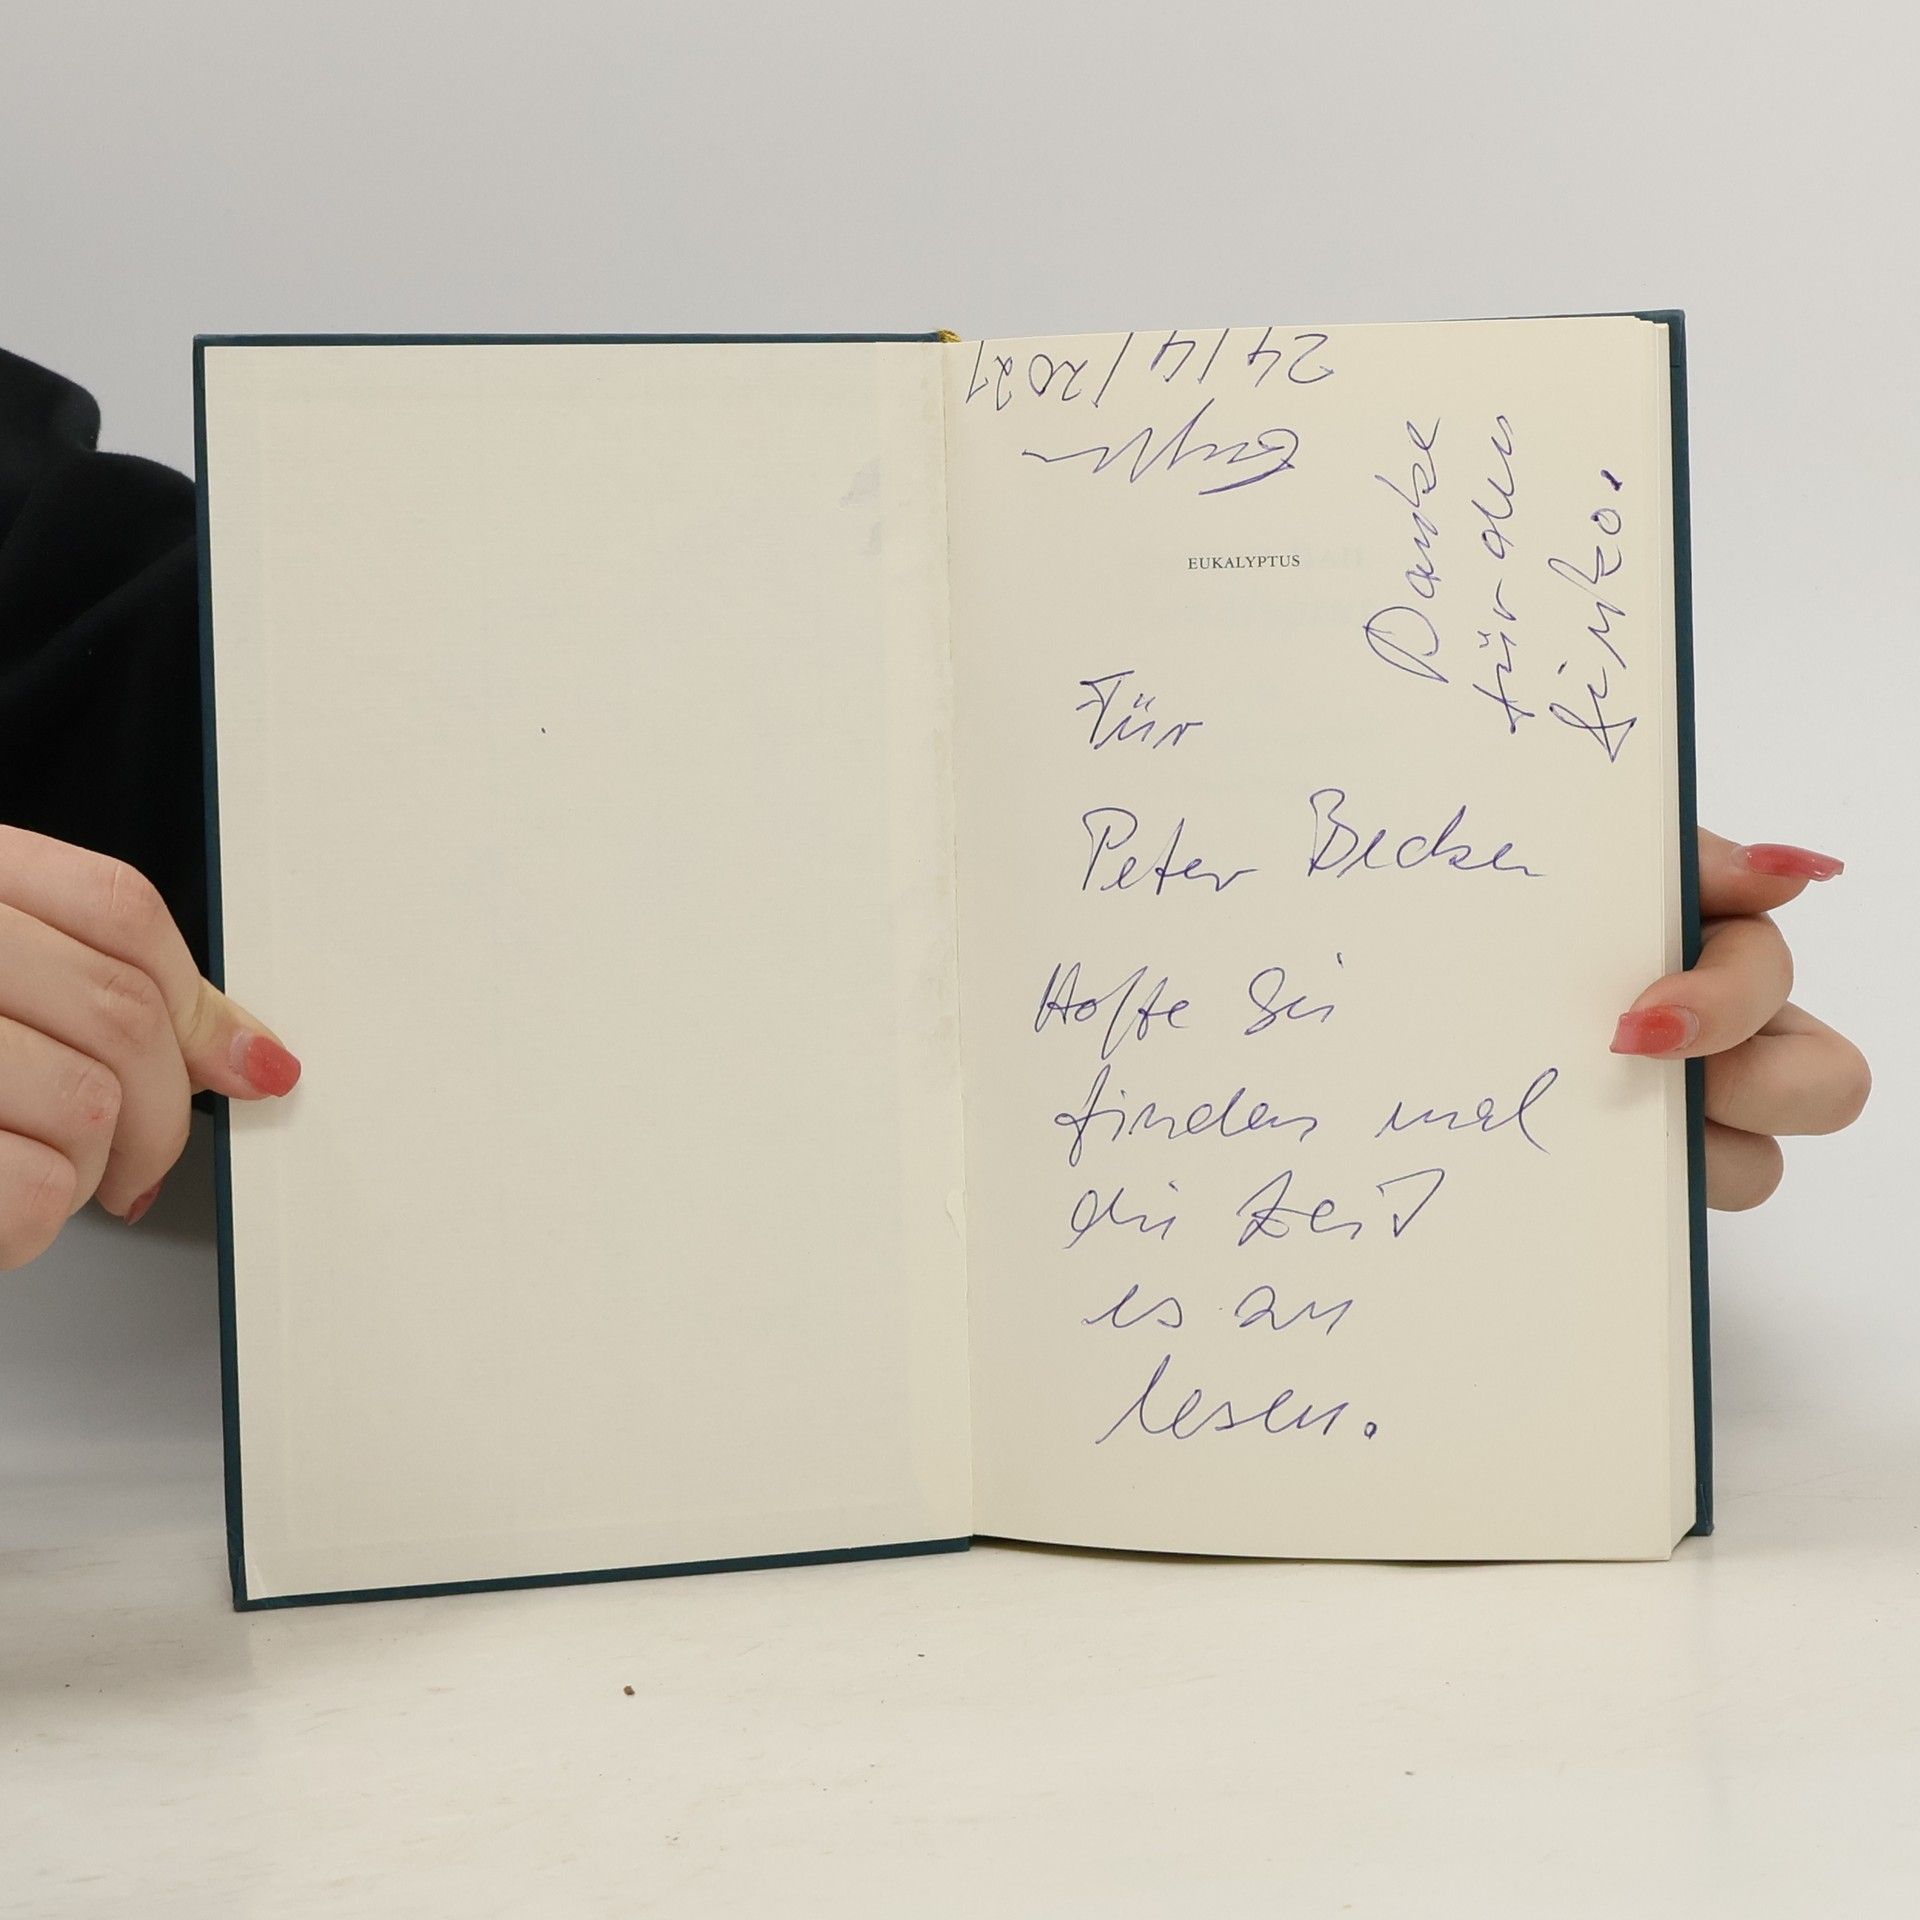 EUKALYPTUS
Für
Peter Becker
Hoffe Sie
finden mal
die Zeit
es zu
lesen.
Danke
für den
Ginkgo.
24/4/2021